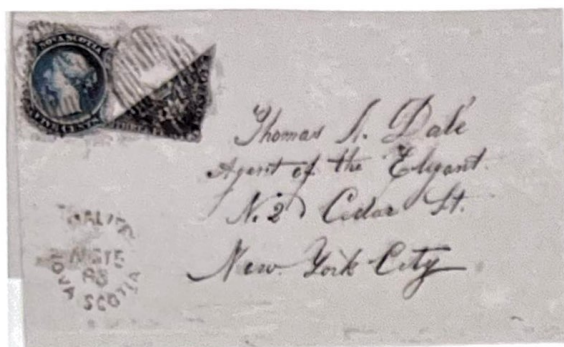 NOVA SCOTIA
Thomas A. Dale
Agent of the Elegant.
N. 2 Cedar St.
New York City
NOVA SCOTIA